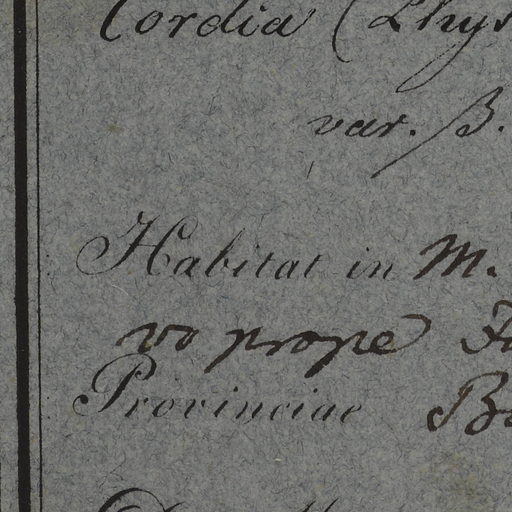 Cordia (Phys
var. β.
Habitat in M.
vo prope
Provinciae